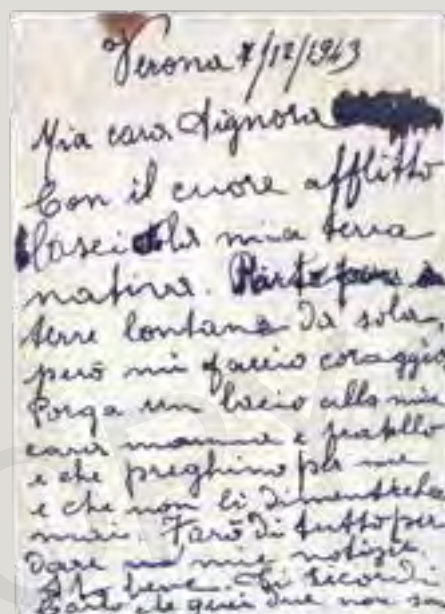 Verona 7/12/1943
Mia cara Signora
Con il cuore afflitto
lascio la mia terra
nativa. Parto per
terre lontane da sola,
però mi faccio coraggio
Porga un bacio alla mia
cara mamma e fratello
e che preghino per me
e che non li dimenticherò
mai. Farò di tutto per
dare mie notizie.
Stia bene. Si ricordi
che quei due non